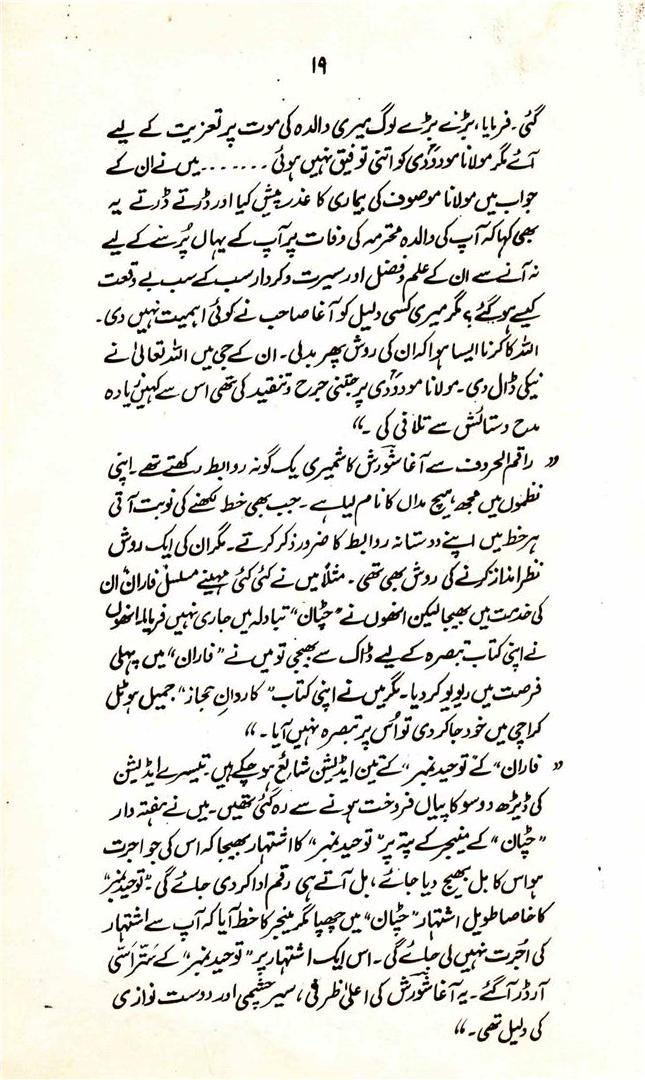 ۱۹
گئی۔ فرمایا، بڑے بڑے لوگ میری والدہ کی موت پر تعزیت کے لیے
آئے مگر مولانا مودودیؒ کو اتنی توفیق نہیں ہوئی ....... میں نے ان کے
جواب میں مولانا موصوف کی بیماری کا عذر پیش کیا اور ڈرتے ڈرتے یہ
بھی کہا کہ آپ کی والدہ محترمہ کی وفات پر آپ کے یہاں پُرسے کے لیے
نہ آنے سے ان کے علم و فضل اور سیرت و کردار سب کے سب بے وقعت
کیسے ہو گئے؟ مگر میری کسی دلیل کو آغا صاحب نے کوئی اہمیت نہیں دی۔
اللہ کا کرنا ایسا ہوا کہ ان کی روش پھر بدلی۔ ان کے جی میں اللہ تعالیٰ نے
نیکی ڈال دی۔ مولانا مودودیؒ پر جتنی جرح و تنقید کی تھی اس سے کہیں زیادہ
مدح و ستائش سے تلافی کی۔“
” راقم الحروف سے آغا شورشؔ کاشمیری یک گونہ روابط رکھتے تھے۔ اپنی
نظموں میں مجھ ہیچ مداں کا نام لیا ہے۔ جب بھی خط لکھنے کی نوبت آتی
ہر خط میں اپنے دوستانہ روابط کا ضرور ذکر کرتے۔ مگر ان کی ایک روش
نظر انداز کرنے کی روش بھی تھی۔ مثلاً میں نے کئی کئی مہینے مسلسل فاران ان
کی خدمت میں بھیجا لیکن انھوں نے ”چٹان“ تبادلہ میں جاری نہیں فرمایا۔ انھوں
نے اپنی کتاب تبصرہ کے لیے ڈاک سے بھیجی تو میں نے ”فاران“ میں پہلی
فرصت میں ریویو کر دیا۔ مگر میں نے اپنی کتاب ”کاروانِ حجاز“ جمیل ہوٹل
کراچی میں خود جا کر دی تو اُس پر تبصرہ نہیں آیا۔“
” فاران“ کے توحید نمبر“ کے تین ایڈیشن شائع ہو چکے ہیں۔ تیسرے ایڈیشن
کی ڈیڑھ دو سو کاپیاں فروخت ہونے سے رہ گئی تھیں۔ میں نے ہفتہ وار
”چٹان“ کے منیجر کے پتہ پر ”توحید نمبر“ کا اشتہار بھیجا کہ اس کی جو اجرت
ہو اس کا بل بھیج دیا جائے، بل آتے ہی رقم ادا کر دی جائے گی۔ ”توحید نمبر“
کا خاصا طویل اشتہار ”چٹان“ میں چھپا مگر منیجر کا خط آیا کہ آپ سے اشتہار
کی اُجرت نہیں لی جائے گی۔ اس ایک اشتہار پر ”توحید نمبر“ کے ستّر اسّی
آرڈر آگئے۔ یہ آغا شورشؔ کی اعلیٰ ظرفی، سیر چشمی اور دوست نوازی
کی دلیل تھی۔“